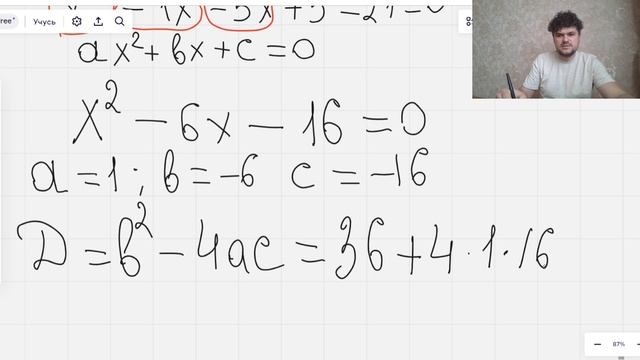 ree Учусь
- 5x + 5 - 21 = 0
ax² + bx + c = 0
x² - 6x - 16 = 0
a = 1; b = -6 c = -16
D = b² - 4ac = 36 + 4 · 1 · 16
87%